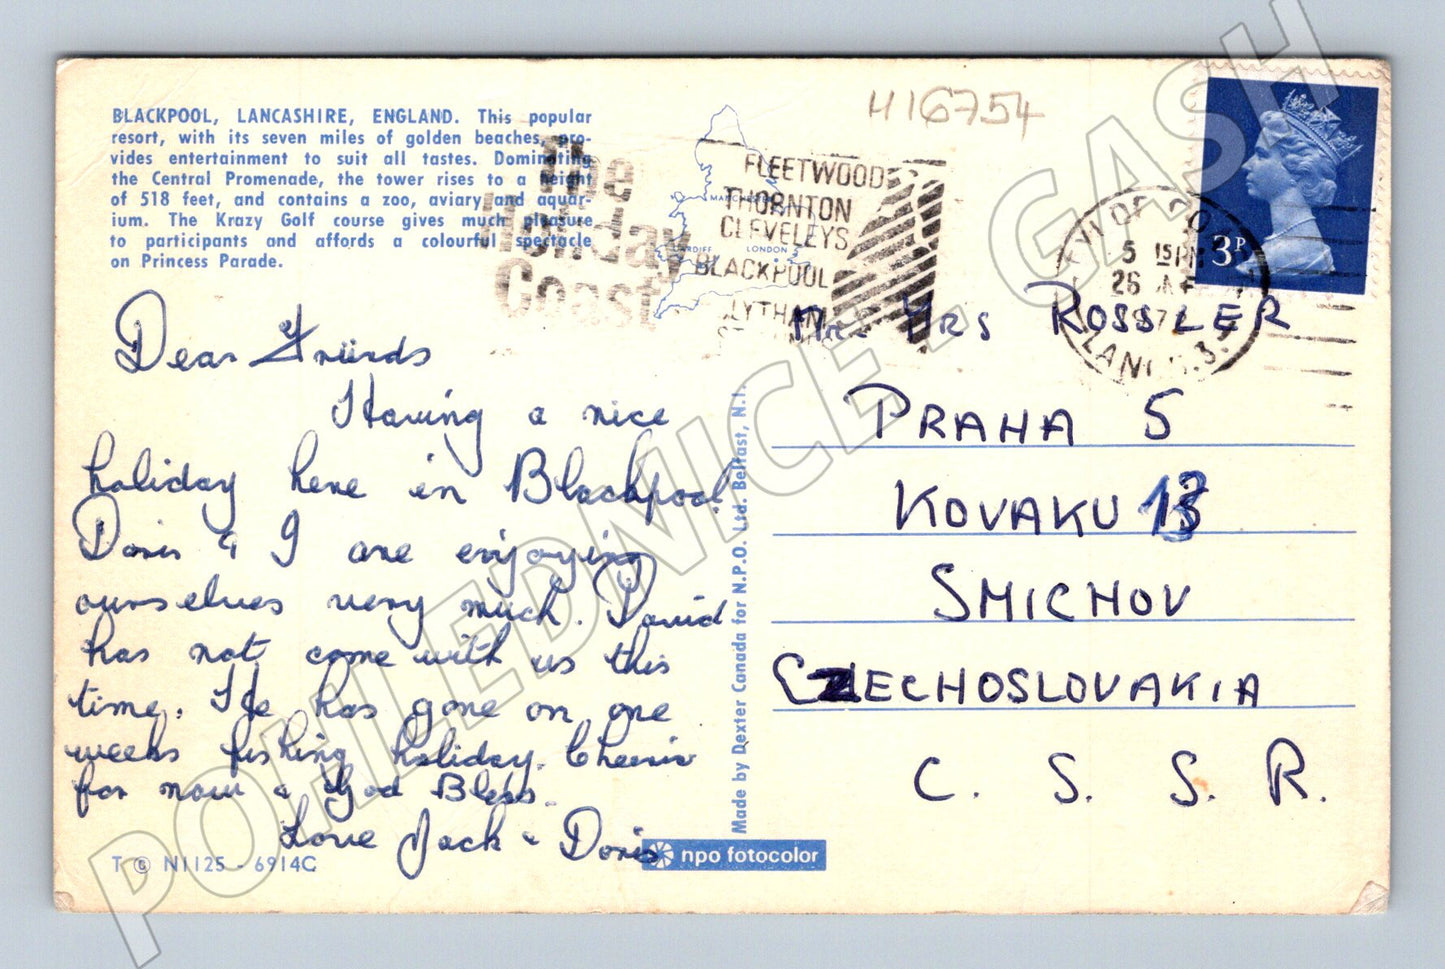 BLACKPOOL, LANCASHIRE, ENGLAND. This popular
resort, with its seven miles of golden beaches, pro-
vides entertainment to suit all tastes. Dominating
the Central Promenade, the tower rises to a height
of 518 feet, and contains a zoo, aviary and aquar-
ium. The Krazy Golf course gives much pleasure
to participants and affords a colourful spectacle
on Princess Parade.
The
Holiday
Coast
MANCHESTER
CARDIFF LONDON
FLEETWOOD
THORNTON
CLEVELEYS
BLACKPOOL
LYTHAM
H16754
3P
5 15PM
26
LANCS. 3.
Dear Friends
Having a nice
holiday here in Blackpool
Doris & I are enjoying
ourselves very much. David
has not come with us this
time. He has gone on one
weeks fishing holiday. Cheerio
for now & God Bless.
Love Jack & Doris
Mr & Mrs ROSSLER
PRAHA 5
KOVAKU 13
SMICHOV
CZECHOSLOVAKIA
C. S. S. R.
Made by Dexter Canada for N.P.O. Ltd. Belfast, N.I.
T © N1125 - 6914C
npo fotocolor
POHLEDNICE.GASH